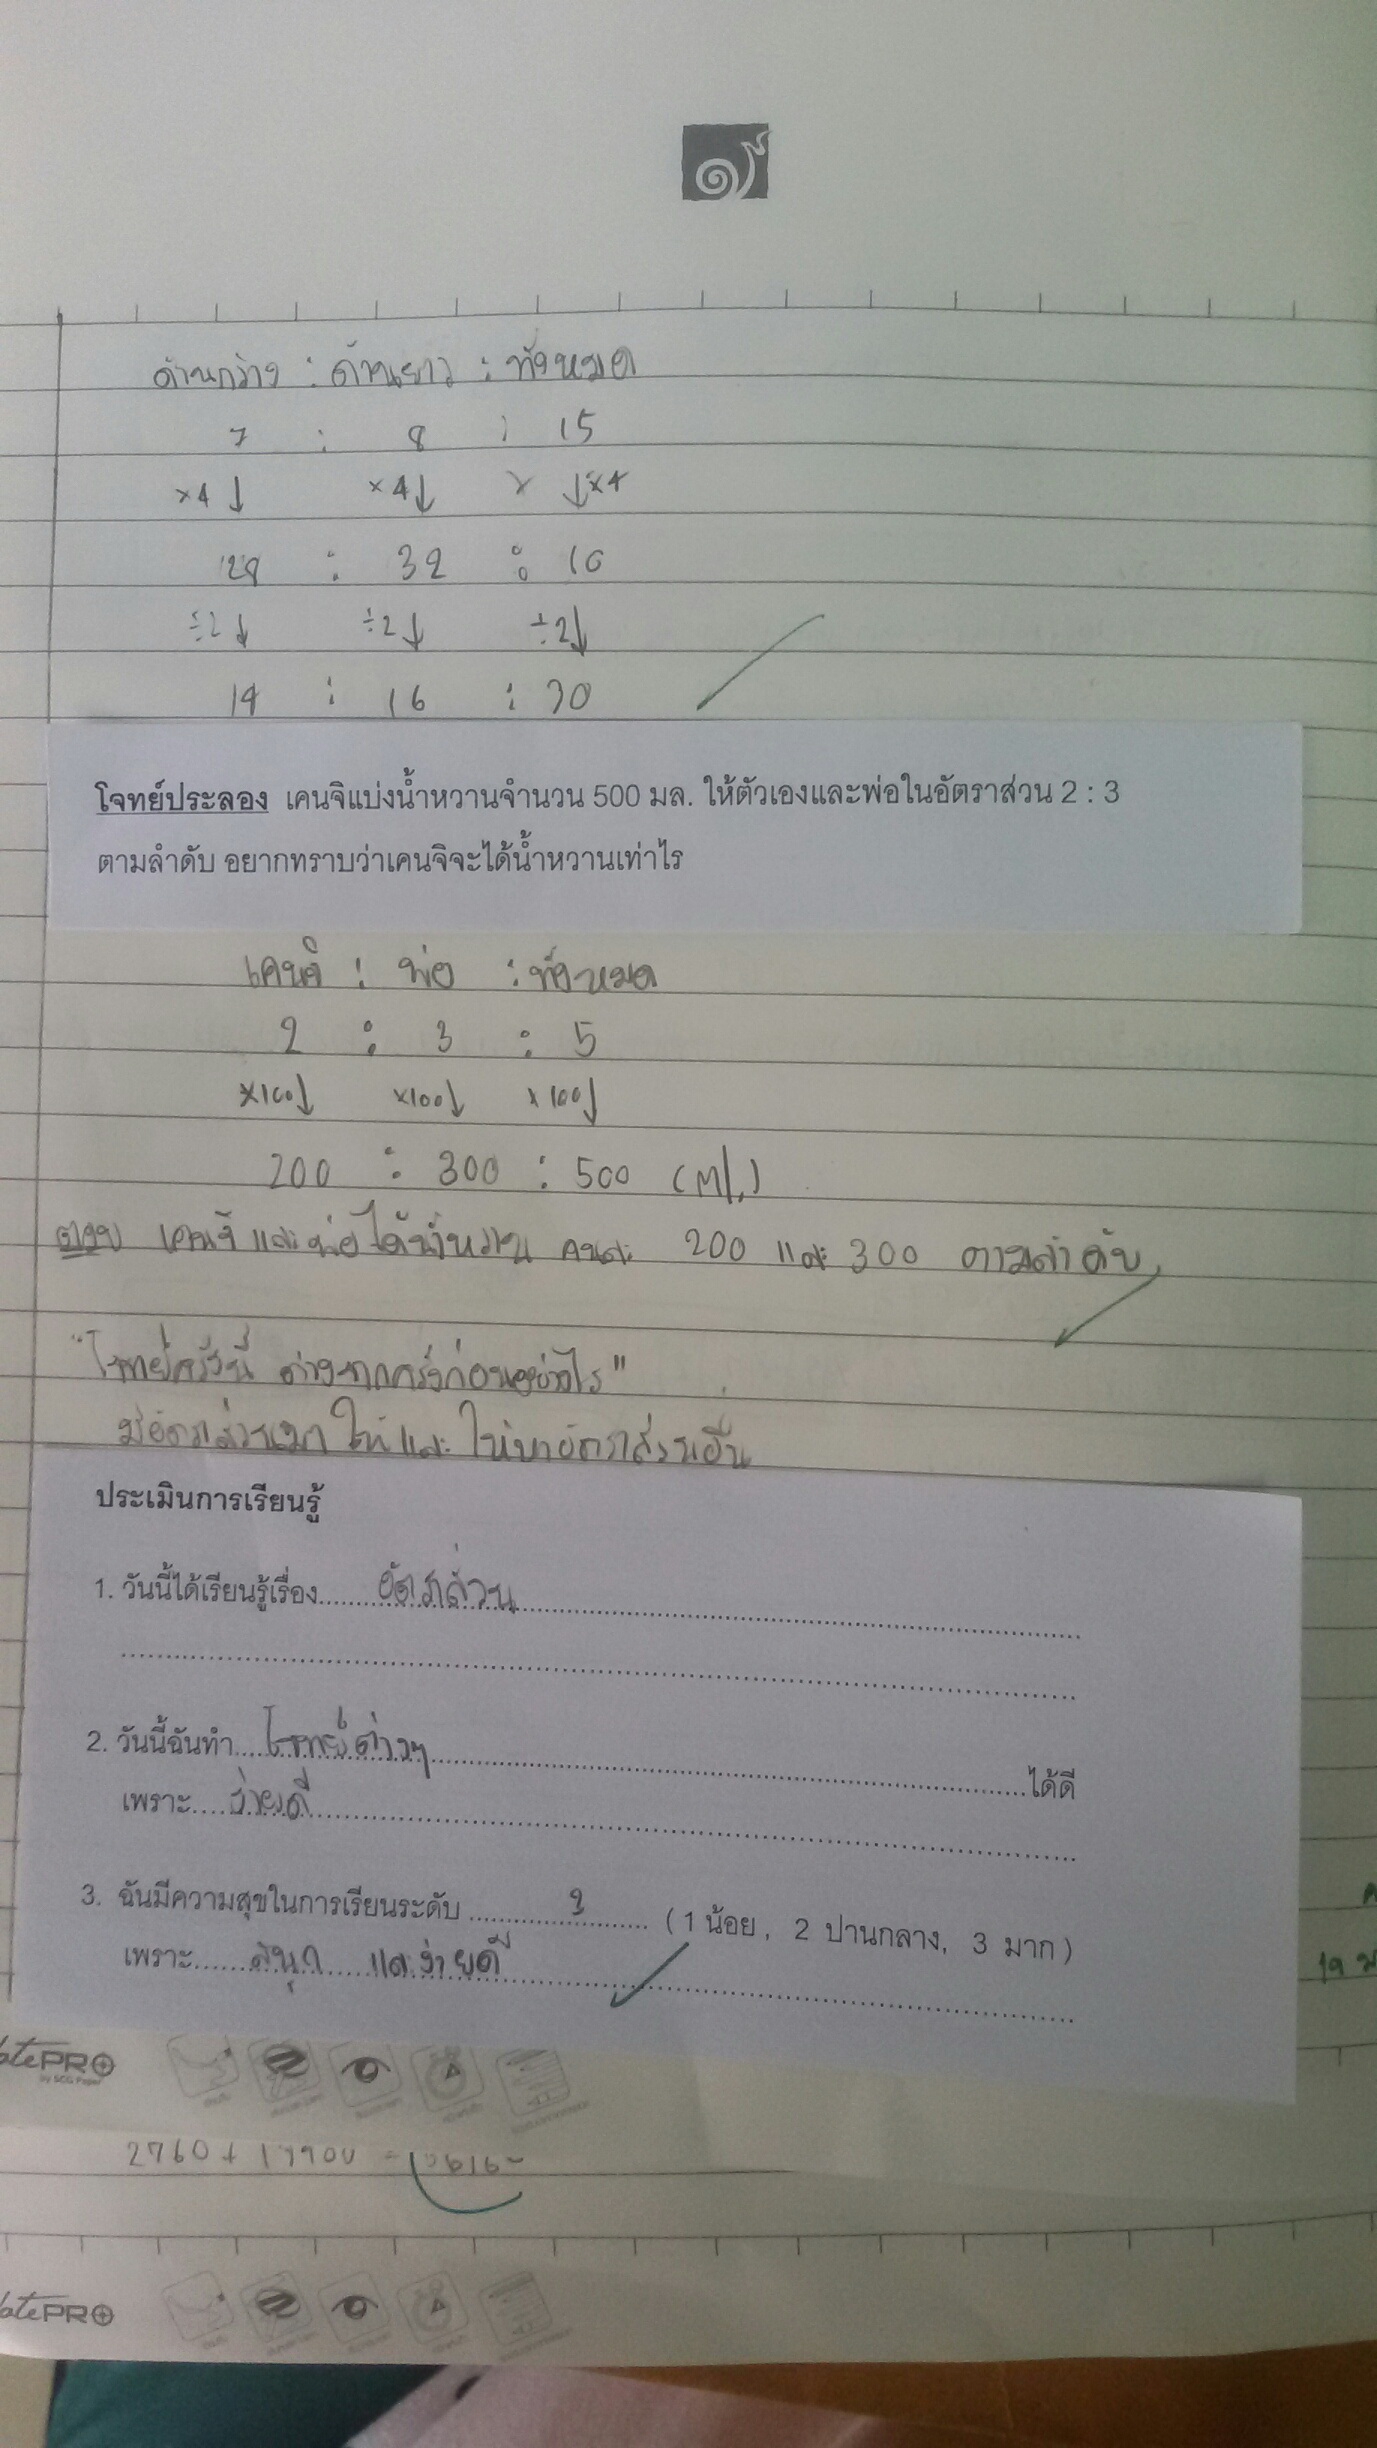 ๑๙
ด้านกว้าง : ด้านยาว : ทั้งหมด
7 : 8 : 15
×4↓ ×4↓ ↓×4
28 : 32 : 60
÷2↓ ÷2↓ ÷2↓
14 : 16 : 30
โจทย์ประลอง เคนจิแบ่งน้ำหวานจำนวน 500 มล. ให้ตัวเองและพ่อในอัตราส่วน 2 : 3
ตามลำดับ อยากทราบว่าเคนจิจะได้น้ำหวานเท่าไร
เคนจิ : พ่อ : ทั้งหมด
2 : 3 : 5
×100↓ ×100↓ ×100↓
200 : 300 : 500 (ml.)
ตอบ เคนจิ และ พ่อ ได้น้ำหวาน คนละ 200 และ 300 ตามลำดับ
"โจทย์ครั้งนี้ ต่างจากครั้งก่อนอย่างไร"
มีอัตราส่วนมาให้และ ให้หาอัตราส่วนอื่น
ประเมินการเรียนรู้
1. วันนี้ได้เรียนรู้เรื่อง.....อัตราส่วน
2. วันนี้ฉันทำ.....โจทย์ต่างๆ.....ได้ดี
เพราะ.....ง่ายดี
3. ฉันมีความสุขในการเรียนระดับ.....2..... (1 น้อย, 2 ปานกลาง, 3 มาก)
เพราะ.....สนุก แล ง่ายดี
19 ม
PRO
by SCG Paper
PRO